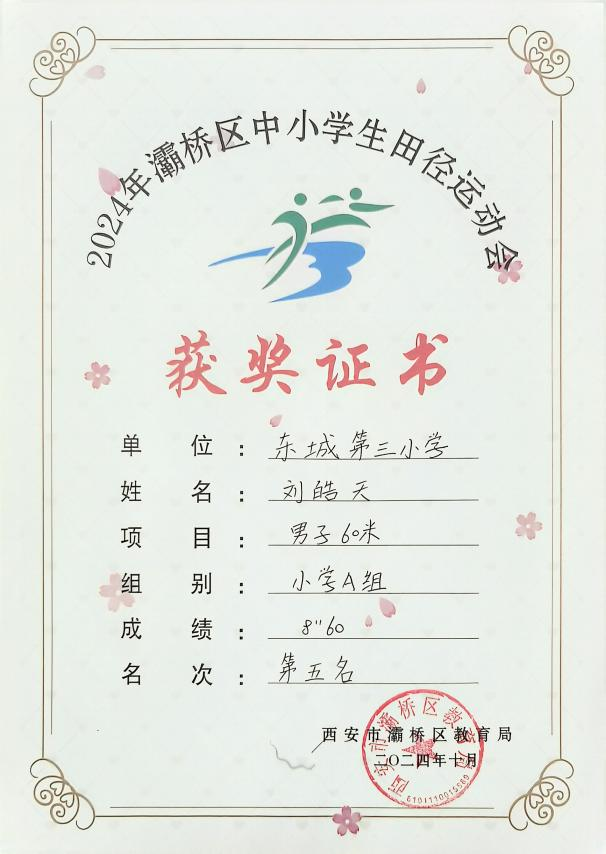 2024年灞桥区中小学生田径运动会
获奖证书
单位：东城第三小学
姓名：刘皓天
项目：男子60米
组别：小学A组
成绩：8"60
名次：第五名
西安市灞桥区教育局
二〇二四年十月
西安市灞桥区教育局
6101110015589